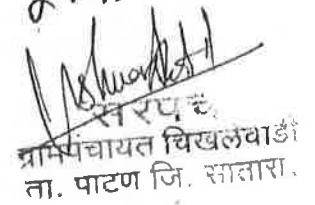 सरपंच
ग्रामपंचायत चिखलेवाडी
ता. पाटण जि. सातारा.